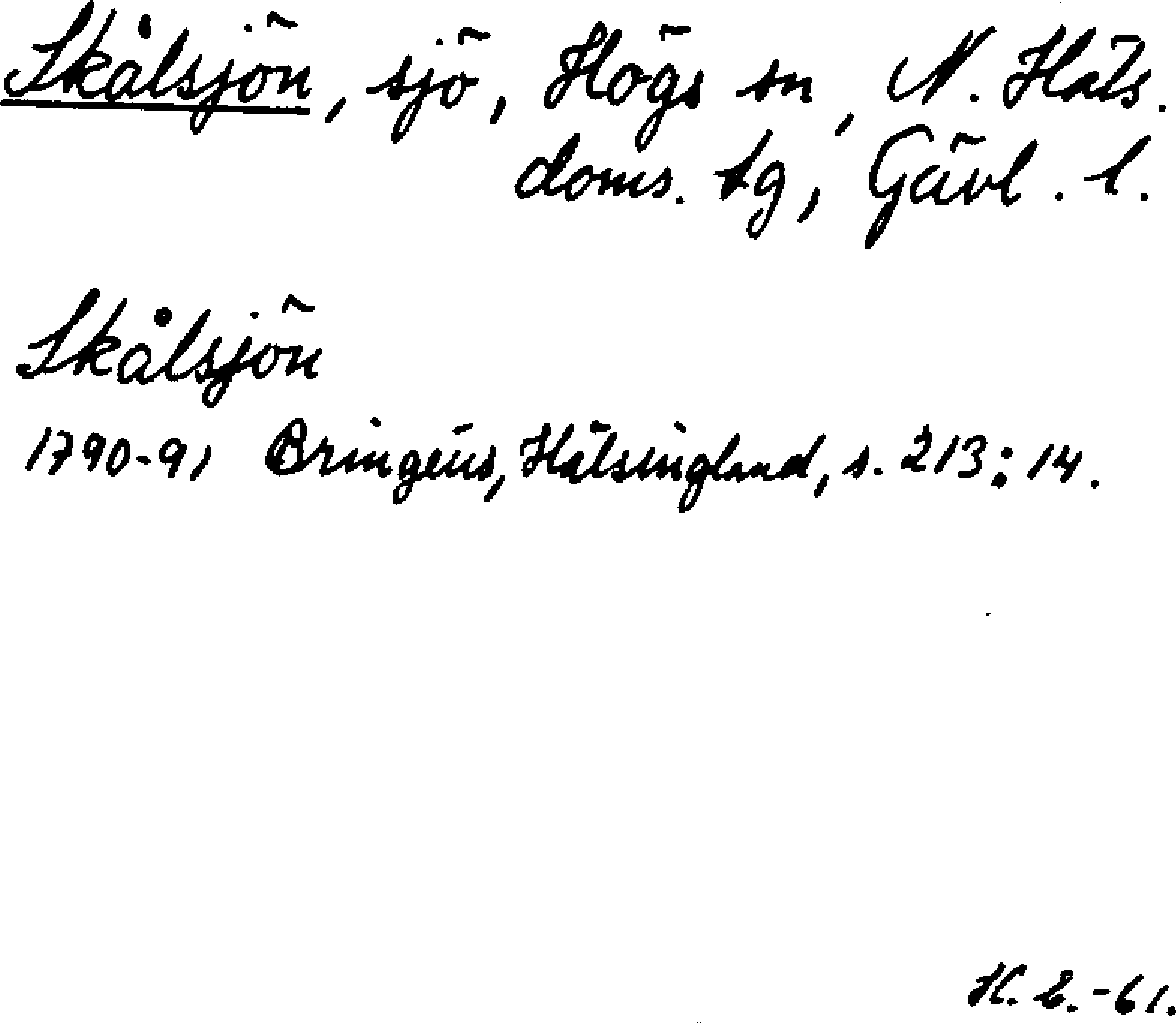 Skålsjön, sjö, Högs sn, N. Häls.
doms. tg, Gävl. l.
Skålsjön
1790-91 Bringéus, Hälsingland, s. 213:14.
H. E. -61.